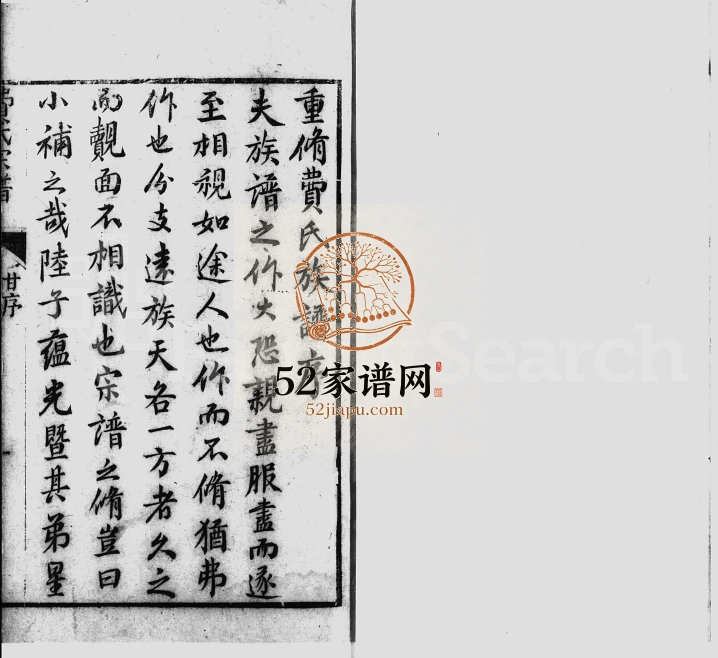 重脩費氏族譜序
夫族譜之作火恐親盡服盡而遂
至相視如途人也作而不脩猶弗
作也分支遠族天各一方者久之
而覿面不相識也宗譜之脩豈曰
小補之哉陸子蘊光暨其弟星
費氏宗譜
甘序
52家谱网
52jiapu.com
Search